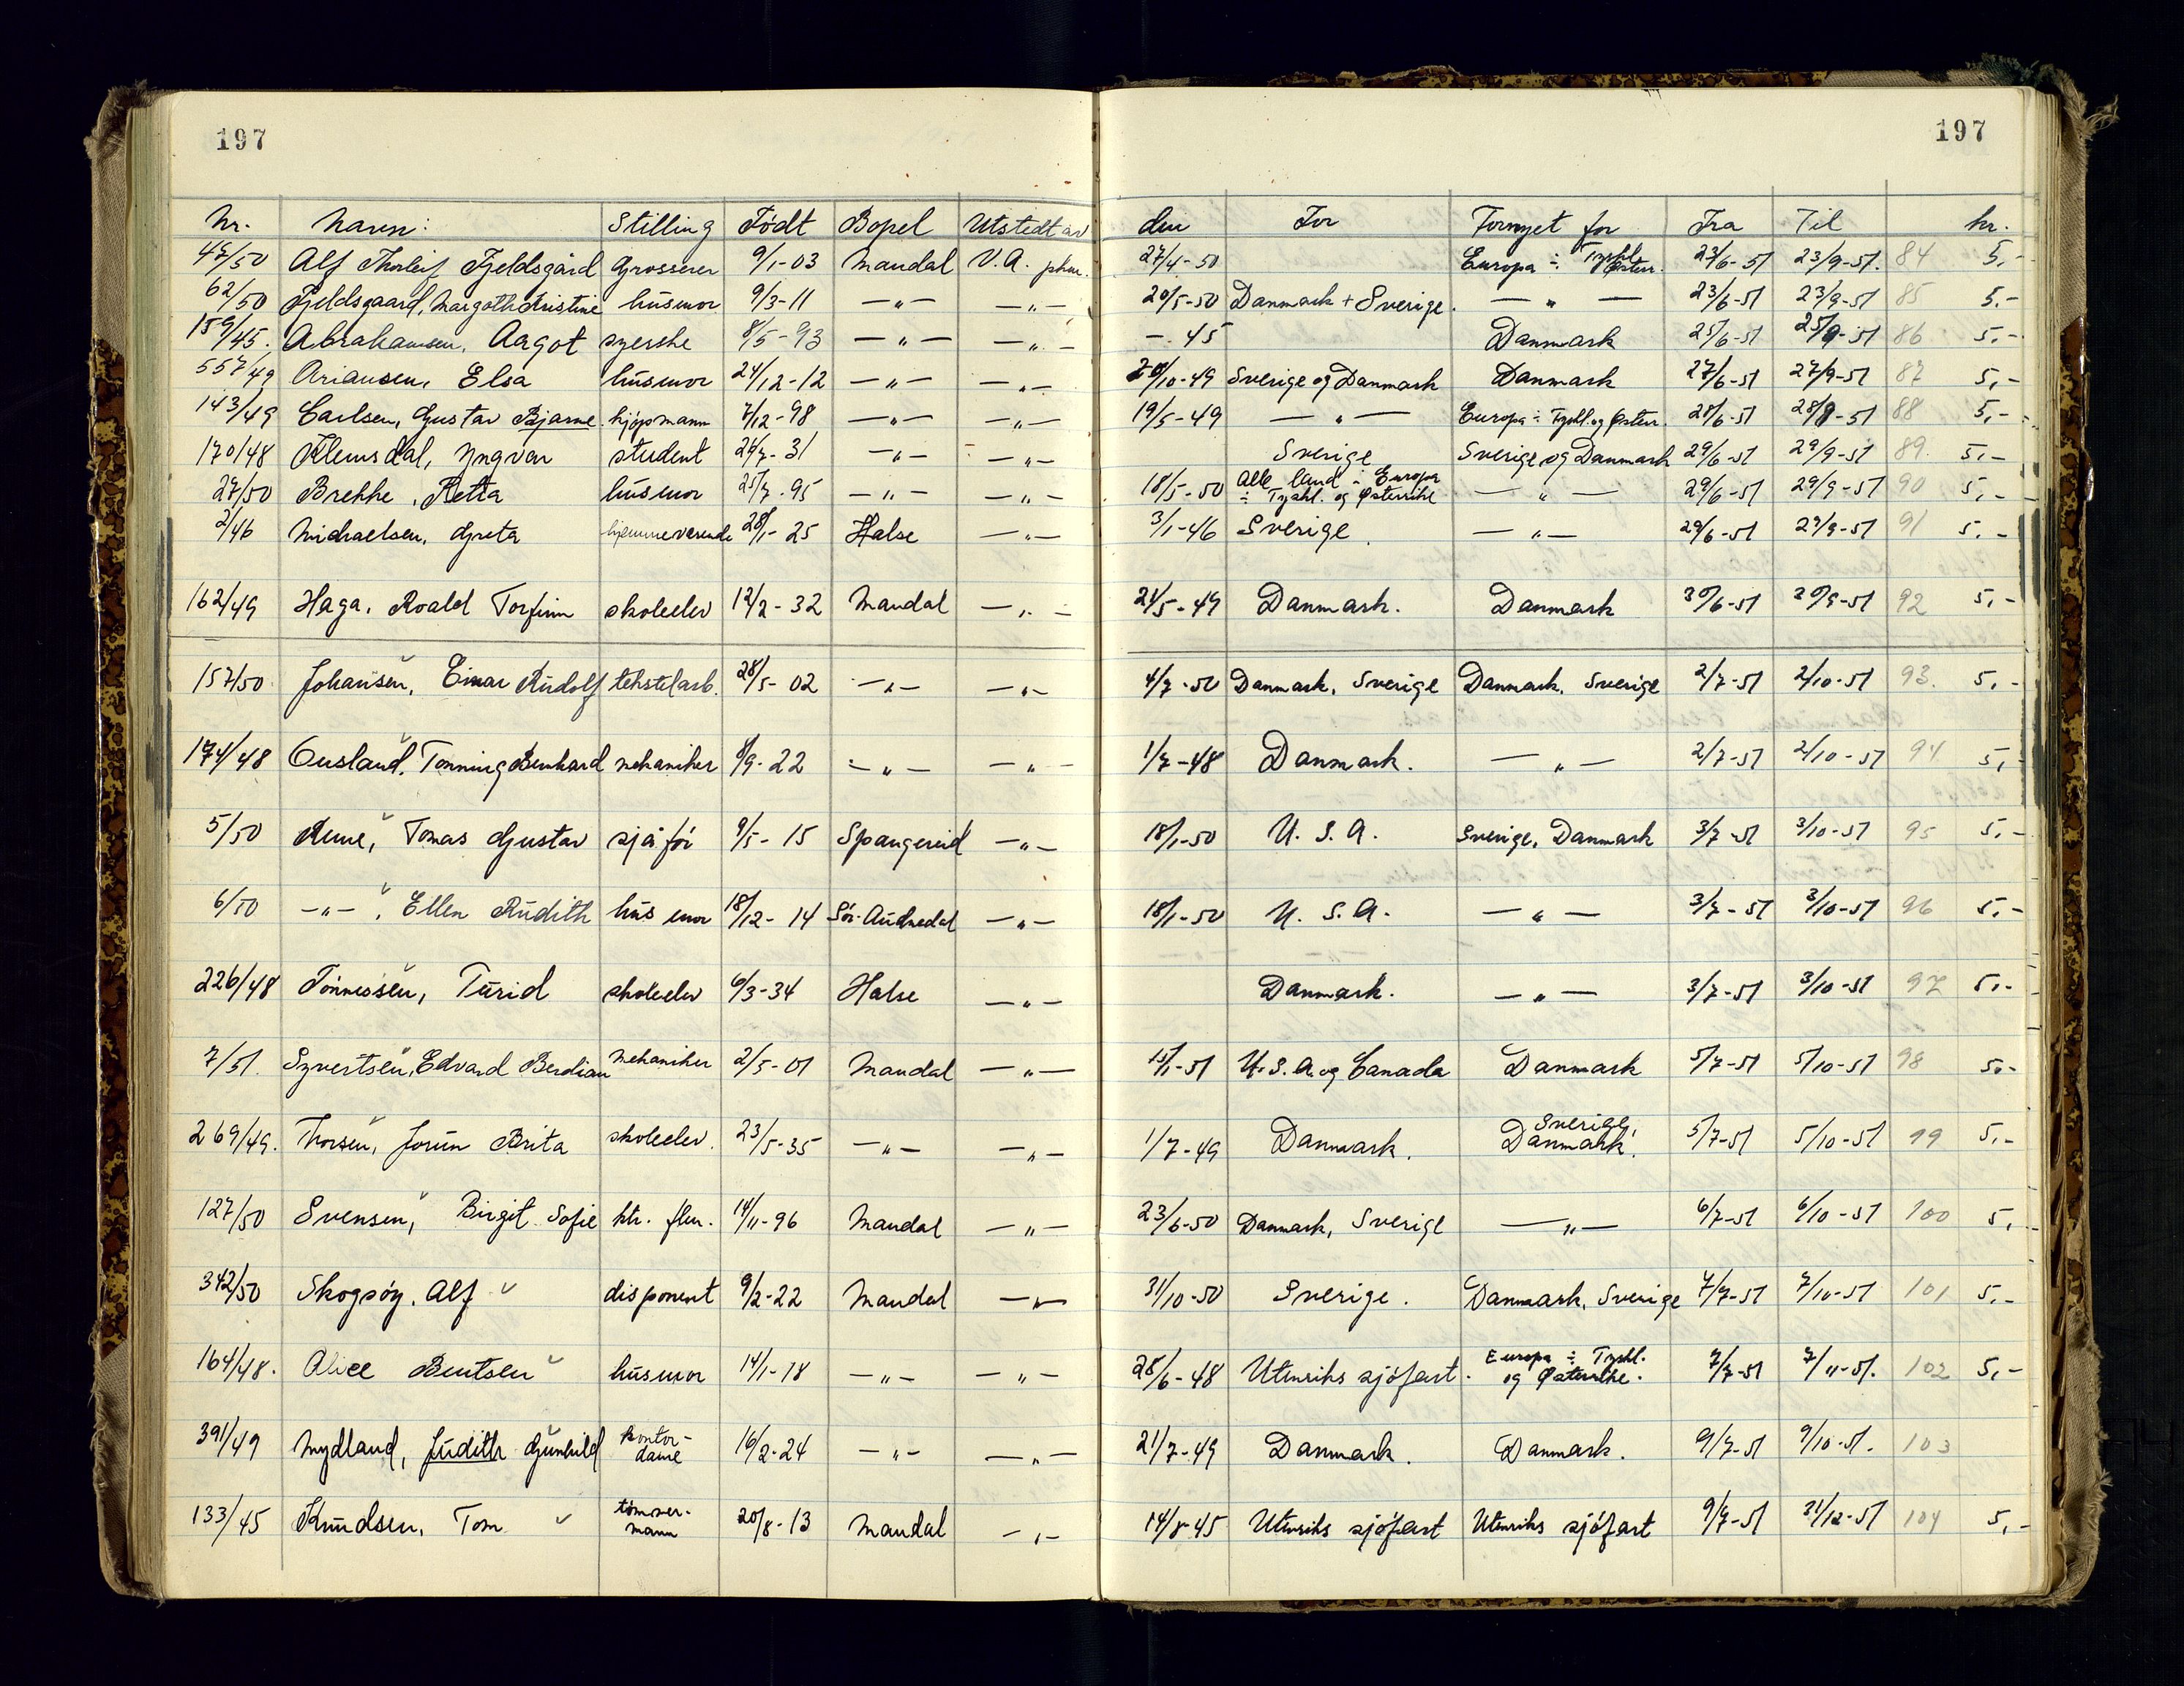 197
197
Nr. Navn: Stilling Født Bopel Utstedt av den For Fornyet for Fra Til kr.
47/50 Alf Thorleif Fjeldsgård Grosserer 9/1-03 Mandal V.A. phm. 27/4-50 Europa ÷ Tyskl. Østerr. 23/6-51 23/9-51. 84 5,-
62/50 Fjeldsgaard, Margoth Kristine husmor 9/3-11 —"— —"— 20/5-50 Danmark + Sverige. —"— 23/6-51 23/9-51 85 5.-
159/45. Abrahamsen, Aagot syerske 8/5-93 —"— —"— -.45 Danmark 25/6-51 25/9-51 86 5.-
557/49 Ariansen, Elsa husmor 24/12-12 —"— —"— 20/10-49 Sverige og Danmark Danmark 27/6-51 27/9-51 87 5,-
143/49 Carlsen, Gustav Bjarne. kjøpmann 7/12-98 —"— —"— 19/5-49 —"— Europa ÷ Tyskl. og Østerr. 28/6-51 28/9-51 88 5,-
170/48 Klemsdal, Yngvar student 26/7-31 —"— —"— Sverige Sverige og Danmark 29/6-51 29/9-51 89. 5,-
27/50 Brekke, Retta husmor 25/7-95 —"— —"— 18/5-50 Alle land i Europa ÷ Tyskl. og Østerrike —"— 29/6-51 29/9-51 90 5,-
2/46 Michaelsen, Greta hjemmeværende 28/1-25 Halse —"— 3/1-46 Sverige. —"— 29/6-51 29/9-51 91 5.-
162/49 Haga, Roald Torfinn skoleelev 12/2-32 Mandal —"— 24/5-49 Danmark. Danmark 30/6-51 30/9-51 92 5,-
157/50 Johansen, Einar Rudolf tekstilarb. 28/5-02 —"— —"— 4/7-50 Danmark, Sverige Danmark, Sverige 2/7-51 2/10-51 93. 5,-
174/48 Ousland, Tønning Bernhard mekaniker 8/9-22 —"— —"— 1/7-48 Danmark. —"— 2/7-51 2/10-51 94 5,-
5/50 Rune, Tomas Gustav sjåfør 9/5-15 Spangereid —"— 18/1-50 U.S.A. Sverige, Danmark 3/7-51 3/10-51 95 5,-
6/50 —"—, Ellen Rudith husmor 18/12-14 Sør-Audnedal —"— 18/1-50 U.S.A. —"— 3/7-51 3/10-51 96 5,-
226/48 Tønnessen, Turid skoleelev 6/3-34 Halse —"— Danmark. —"— 3/7-51 3/10-51 97 5,-
7/51. Syvertsen, Edvard Berdian mekaniker 2/5-01 Mandal —"— 15/1-51 U.S.A. og Canada Danmark 5/7-51 5/10-51 98 5.-
269/49. Thorsen, Jorun Brita skoleelev. 23/5-35 —"— —"— 1/7-49 Danmark. Sverige, Danmark. 5/7-51 5/10-51 99 5,-
127/50 Svensen, Birgit Sofie ktr. flm. 14/11-96 Mandal —"— 23/6-50 Danmark, Sverige —"— 6/7-51 6/10-51 100 5,-
342/50 Skogsøy, Alf disponent 9/2-22 Mandal —"— 31/10-50 Sverige. Danmark, Sverige 7/7-51 7/10-51 101 5,-
164/48. Alice Bentsen husmor 14/1-18 —"— —"— 28/6-48 Utenriks sjøfart. Europa ÷ Tyskl. og Østerrike. 7/7-51 7/11-51. 102 5,-
391/49 Mydland, Judith Gunhild kontor-dame 16/2-24 —"— —"— 21/7-49 Danmark. Danmark. 9/7-51 9/10-51. 103
133/45 Knudsen, Tom tømmer-mann 20/8-13 Mandal —"— 14/8-45 Utenriks sjøfart Utenriks sjøfart 9/7-51 31/12-51 104 5,-